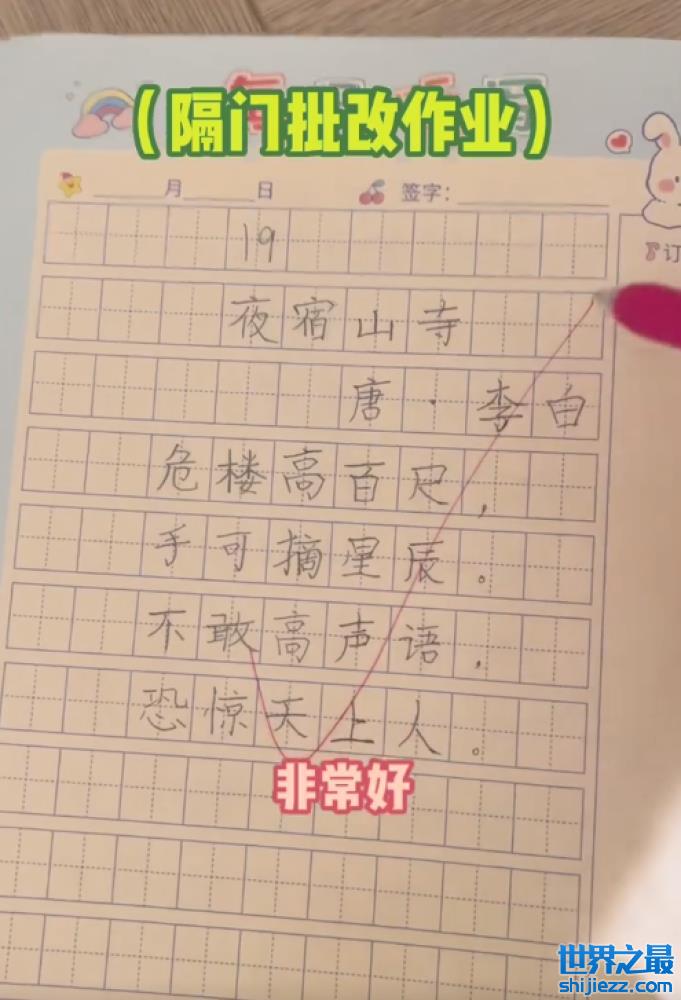 （隔门批改作业）
月 日 签字：
订
19
夜宿山寺
唐·李白
危楼高百尺，
手可摘星辰。
不敢高声语，
恐惊天上人。
非常好
世界之最
shijiezz.com